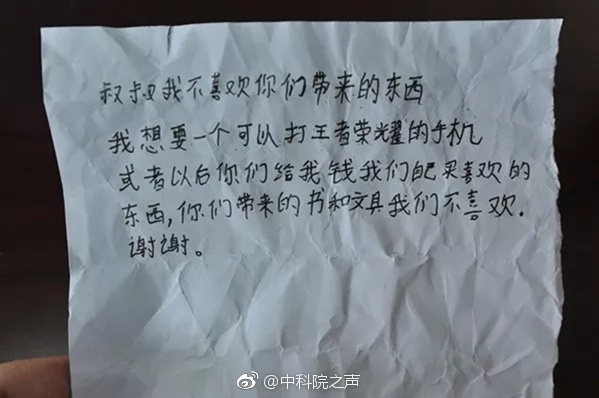 叔叔我不喜欢你们带来的东西
我想要一个可以打王者荣耀的手机
或者以后你们给我钱我们自己买喜欢的
东西,你们带来的书和文具我们不喜欢.
谢谢。
@中科院之声